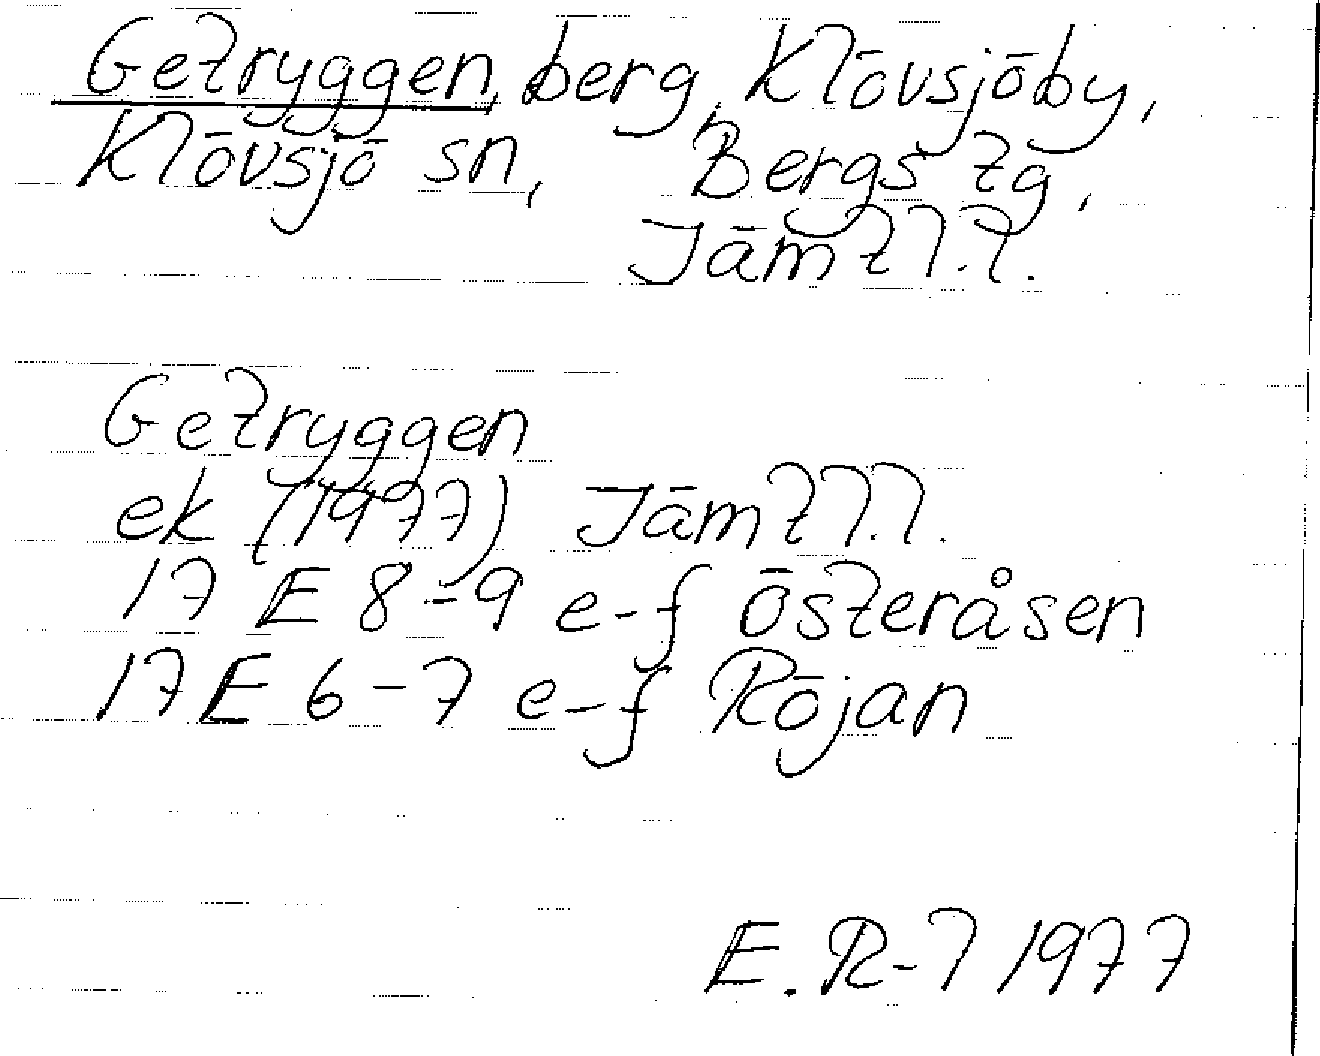 Getryggen, berg, Klövsjöby,
Klövsjö sn, Bergs tg,
Jämtl.l.
Getryggen
ek (1977) Jämtl.l.
17 E 8-9 e-f Österåsen
17 E 6-7 e-f Röjan
E. R-l 1977